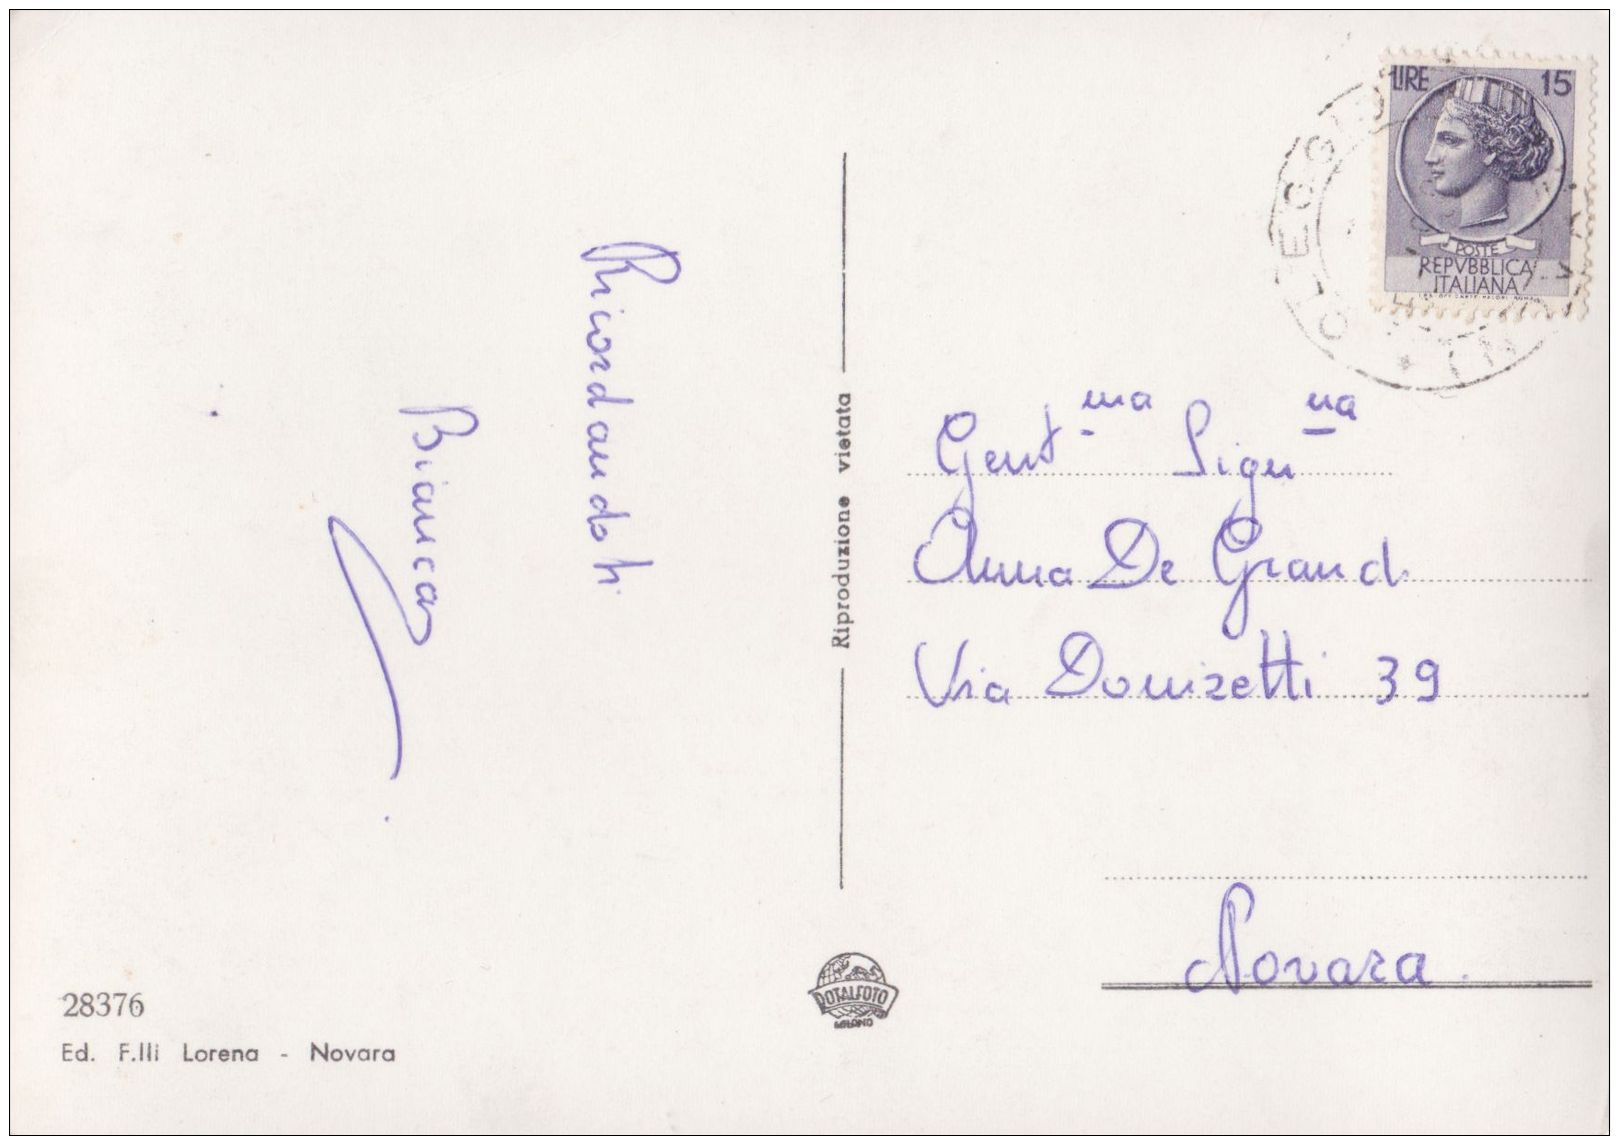 Ricordandoti
Bianca
28376
Ed. F.lli Lorena - Novara
Riproduzione vietata
ROTALFOTO
MILANO
LIRE 15
POSTE
REPVBBLICA
ITALIANA
OLEGGIO
Gent.ma Sign.na
Anna De Grandi
Via Donizetti 39
Novara.